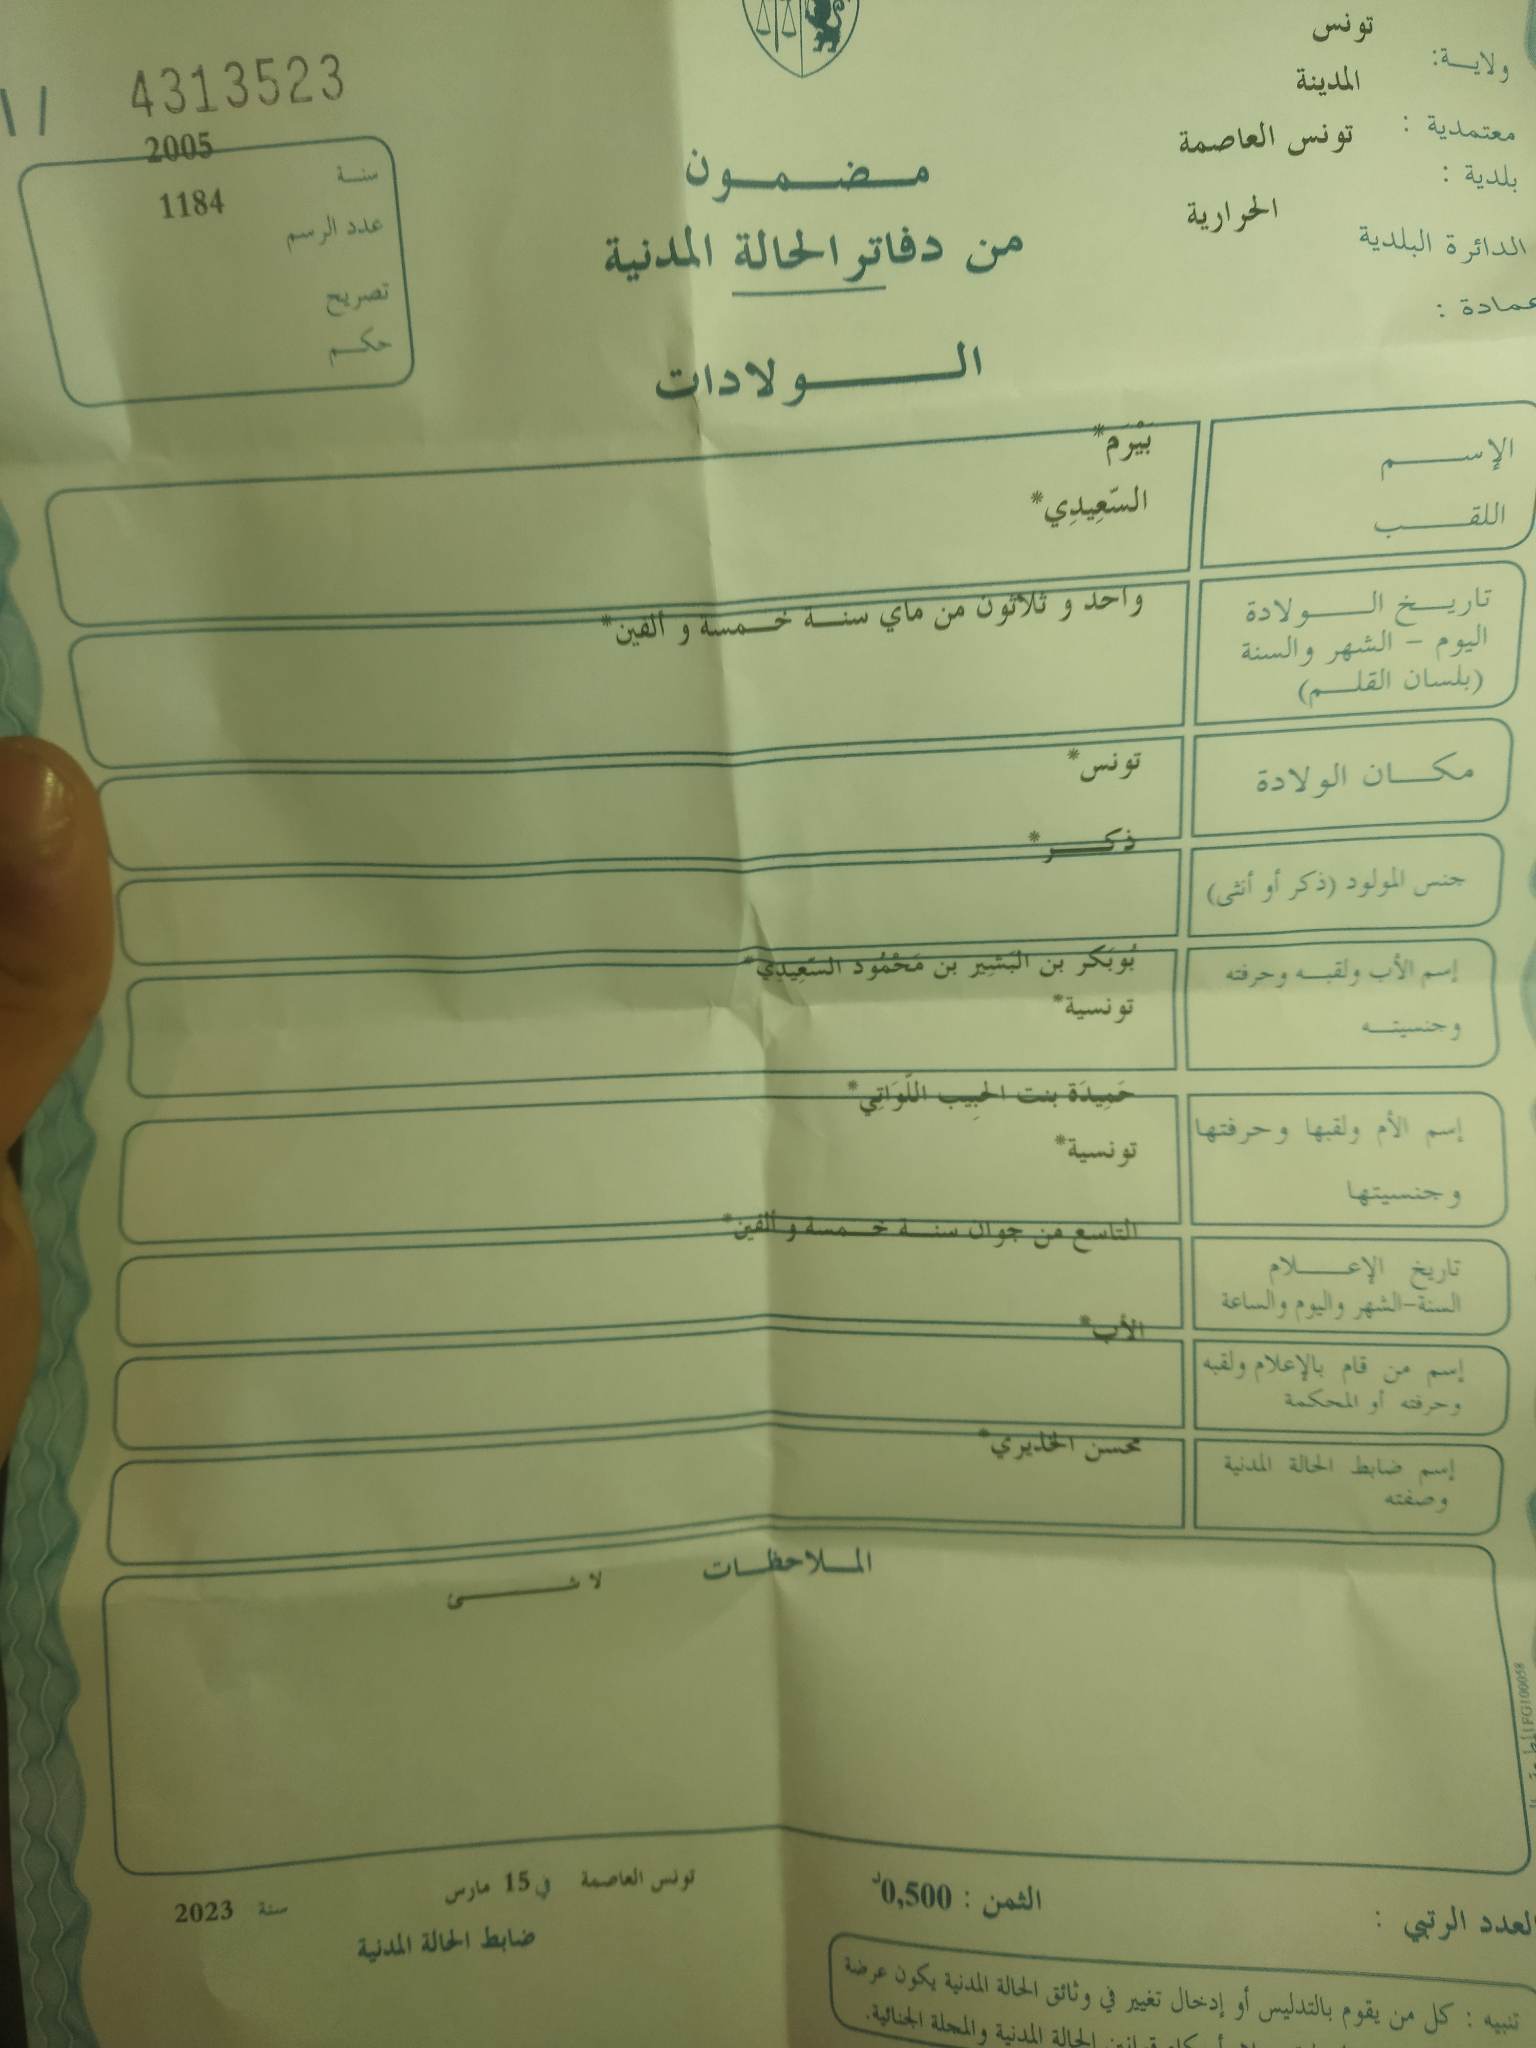 ولاية: تونس
معتمدية : المدينة
بلدية : تونس العاصمة
الدائرة البلدية الحرارية
عمادة :
4313523
سنة 2005
عدد الرسم 1184
تصريح
حكم
مضمون
من دفاتر الحالة المدنية
الولادات
الإسم بَيْرَم*
اللقب السّعِيدِي*
تاريخ الولادة واحد و ثلاثون من ماي سنة خمسة و ألفين*
اليوم - الشهر والسنة
(بلسان القلم)
مكان الولادة تونس*
جنس المولود (ذكر أو أنثى) ذكر*
إسم الأب ولقبه وحرفته بُوبَكر بن البَشِير بن مَحْمُود السّعِيدِي*
وجنسيته تونسية*
إسم الأم ولقبها وحرفتها حَمِيدَة بنت الحَبِيب اللّوَاتِي*
وجنسيتها تونسية*
تاريخ الإعلام التاسع من جوان سنة خمسة و ألفين*
السنة-الشهر واليوم والساعة
إسم من قام بالإعلام ولقبه الأب*
وحرفته أو المحكمة
إسم ضابط الحالة المدنية محسن الخذيري*
وصفته
الملاحظات
لا شيء
تونس العاصمة في 15 مارس سنة 2023
ضابط الحالة المدنية
الثمن : 0,500د
العدد الرتبي :
تنبيه : كل من يقوم بالتدليس أو إدخال تغيير في وثائق الحالة المدنية يكون عرضة
قوانين الحالة المدنية والمجلة الجنائية.